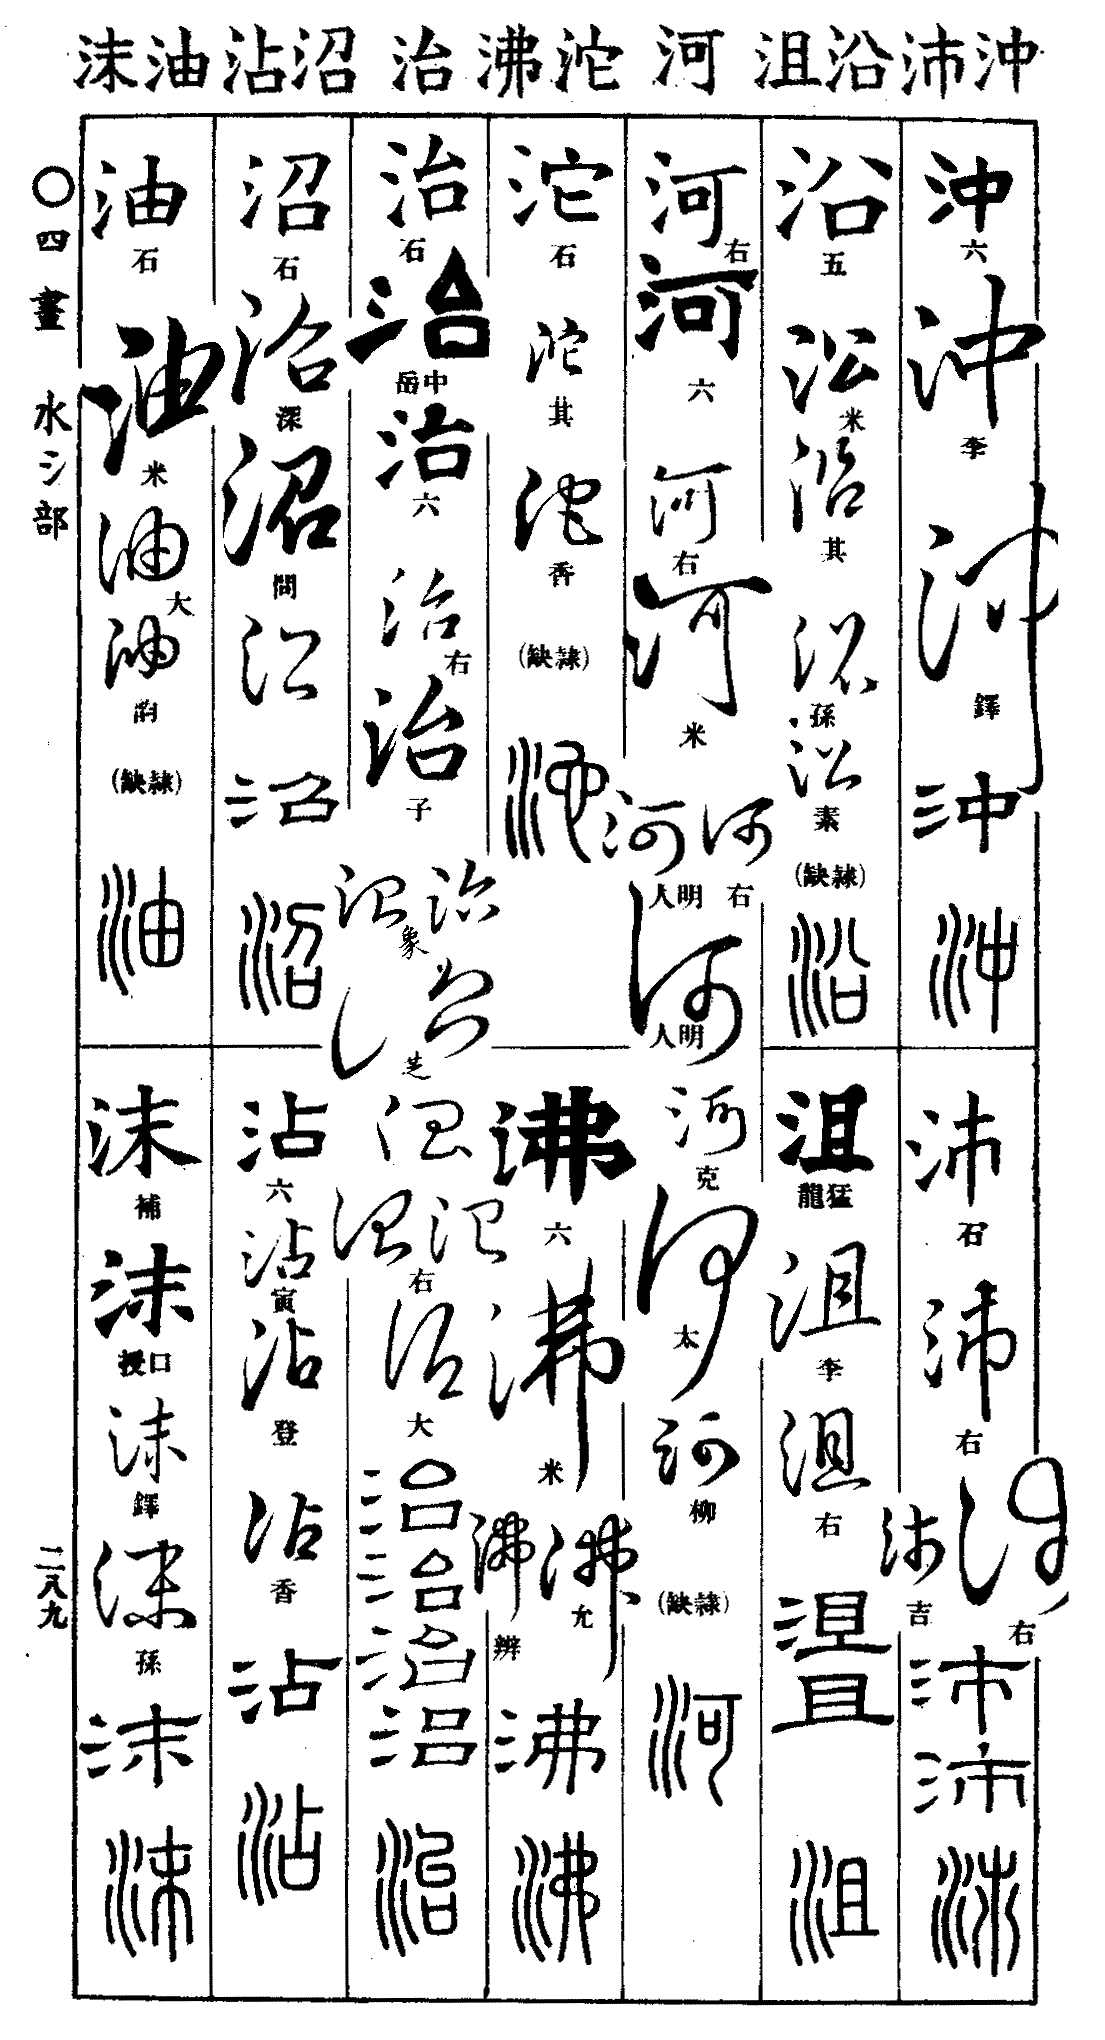 沖沛沿沮 河 沱沸 治 沼沾 油沫
沖 六 沖 李 沖 鐸 沖 沖
沛 石 沛 右 沛 右 沛 吉 沛 沛 沛
沿 五 沿 米 沿 其 沿 孫 沿 素 (缺隷) 沿
沮 龍猛 沮 李 沮 右 沮 沮 沮
河 右 河 六 河 右 河 米 河 右 河 明人 河 明人
河 克 河 太 河 柳 (缺隷) 河
沱 石 沱 其 沱 香 (缺隷) 沱
沸 六 沸 米 沸 允 沸 辨 沸 沸
治 石 治 中岳 治 六 治 右 治 子 治 治 象 治 芝
治 治 治 右 治 大 治 治 治 治 治
沼 石 沼 深 沼 問 沼 沼 沼
沾 六 沾 寅 沾 登 沾 香 沾 沾
油 石 油 米 油 大 油 韵 (缺隷) 油
沫 補 沫 口授 沫 鐸 沫 孫 沫 沫
〇四畫 水氵部
二八九